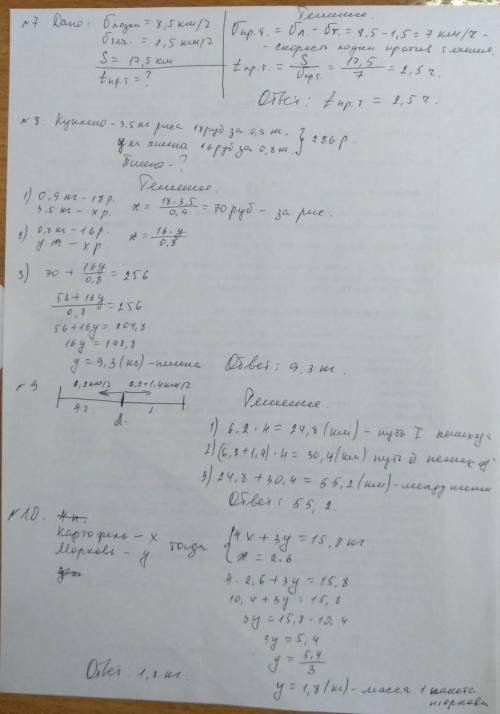 №7 Дано: υлодки = 8,5 км/ч
υтеч. = 1,5 км/ч
S = 17,5 км
tпр.т = ?
Решение.
υпр.т. = υл. - υт. = 8,5 - 1,5 = 7 км/ч -
- скорость лодки против течения.
tпр.т. = S/υпр.т. = 17,5/7 = 2,5 ч.
Ответ: tпр.т = 2,5 ч.
№8. Куплено - 3.5 кг риса 18 руб за 0,9 кг. } 256 р.
y кг пшена 16 руб за 0,8 кг.
Пшено - ?
Решение.
1) 0,9 кг - 18 р.
3,5 кг - x р. x = 18·3,5/0,9 = 70 руб - за рис.
2) 0,8 кг - 16 р.
y кг - x р. x = 16·y/0,8
3) 70 + 16y/0,8 = 256
56+16y/0,8 = 256
56+16y = 204,8
16y = 148,8
y = 9,3 (кг) - пшена Ответ: 9,3 кг.
№9 6,2 км/ч 6,2+1,4 км/ч
4 ч.
A.
Решение.
1) 6.2 · 4 = 24,8 (км) - путь I пешехода
2) (6,2+1,4) · 4 = 30,4 (км) путь II пешех
3) 24,8 + 30.4 = 55,2 (км) - между ними
Ответ: 55,2.
№10.
Картофель - x
Морковь - y тогда
{ 4x + 3y = 15,8 кг
x = 2.6
4 · 2,6 + 3y = 15,8
10,4 + 3y = 15,8
3y = 15,8 - 10,4
3y = 5,4
y = 5,4/3
y = 1,8 (кг) - масса 1 пакета
моркови
Ответ: 1,8 кг.